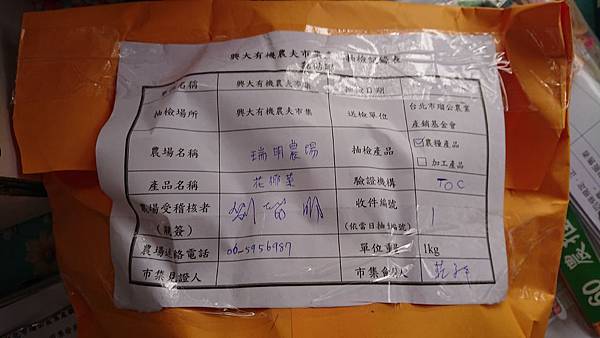 興大有機農夫市集 抽檢記錄表
黏貼處
名稱 興大有機農夫市集 抽檢日期
抽檢場所 興大有機農夫市集 送檢單位 台北市瑠公農業
產銷基金會
農場名稱 瑞明農場 抽檢產品 ☑農糧產品
□加工產品
產品名稱 花椰菜 驗證機構 TOC
農場受稽核者
(親簽)
收件編號
(依當日抽檢編號) 1
農場連絡電話 06-5956987 單位重 1kg
市集見證人 市集 人
60